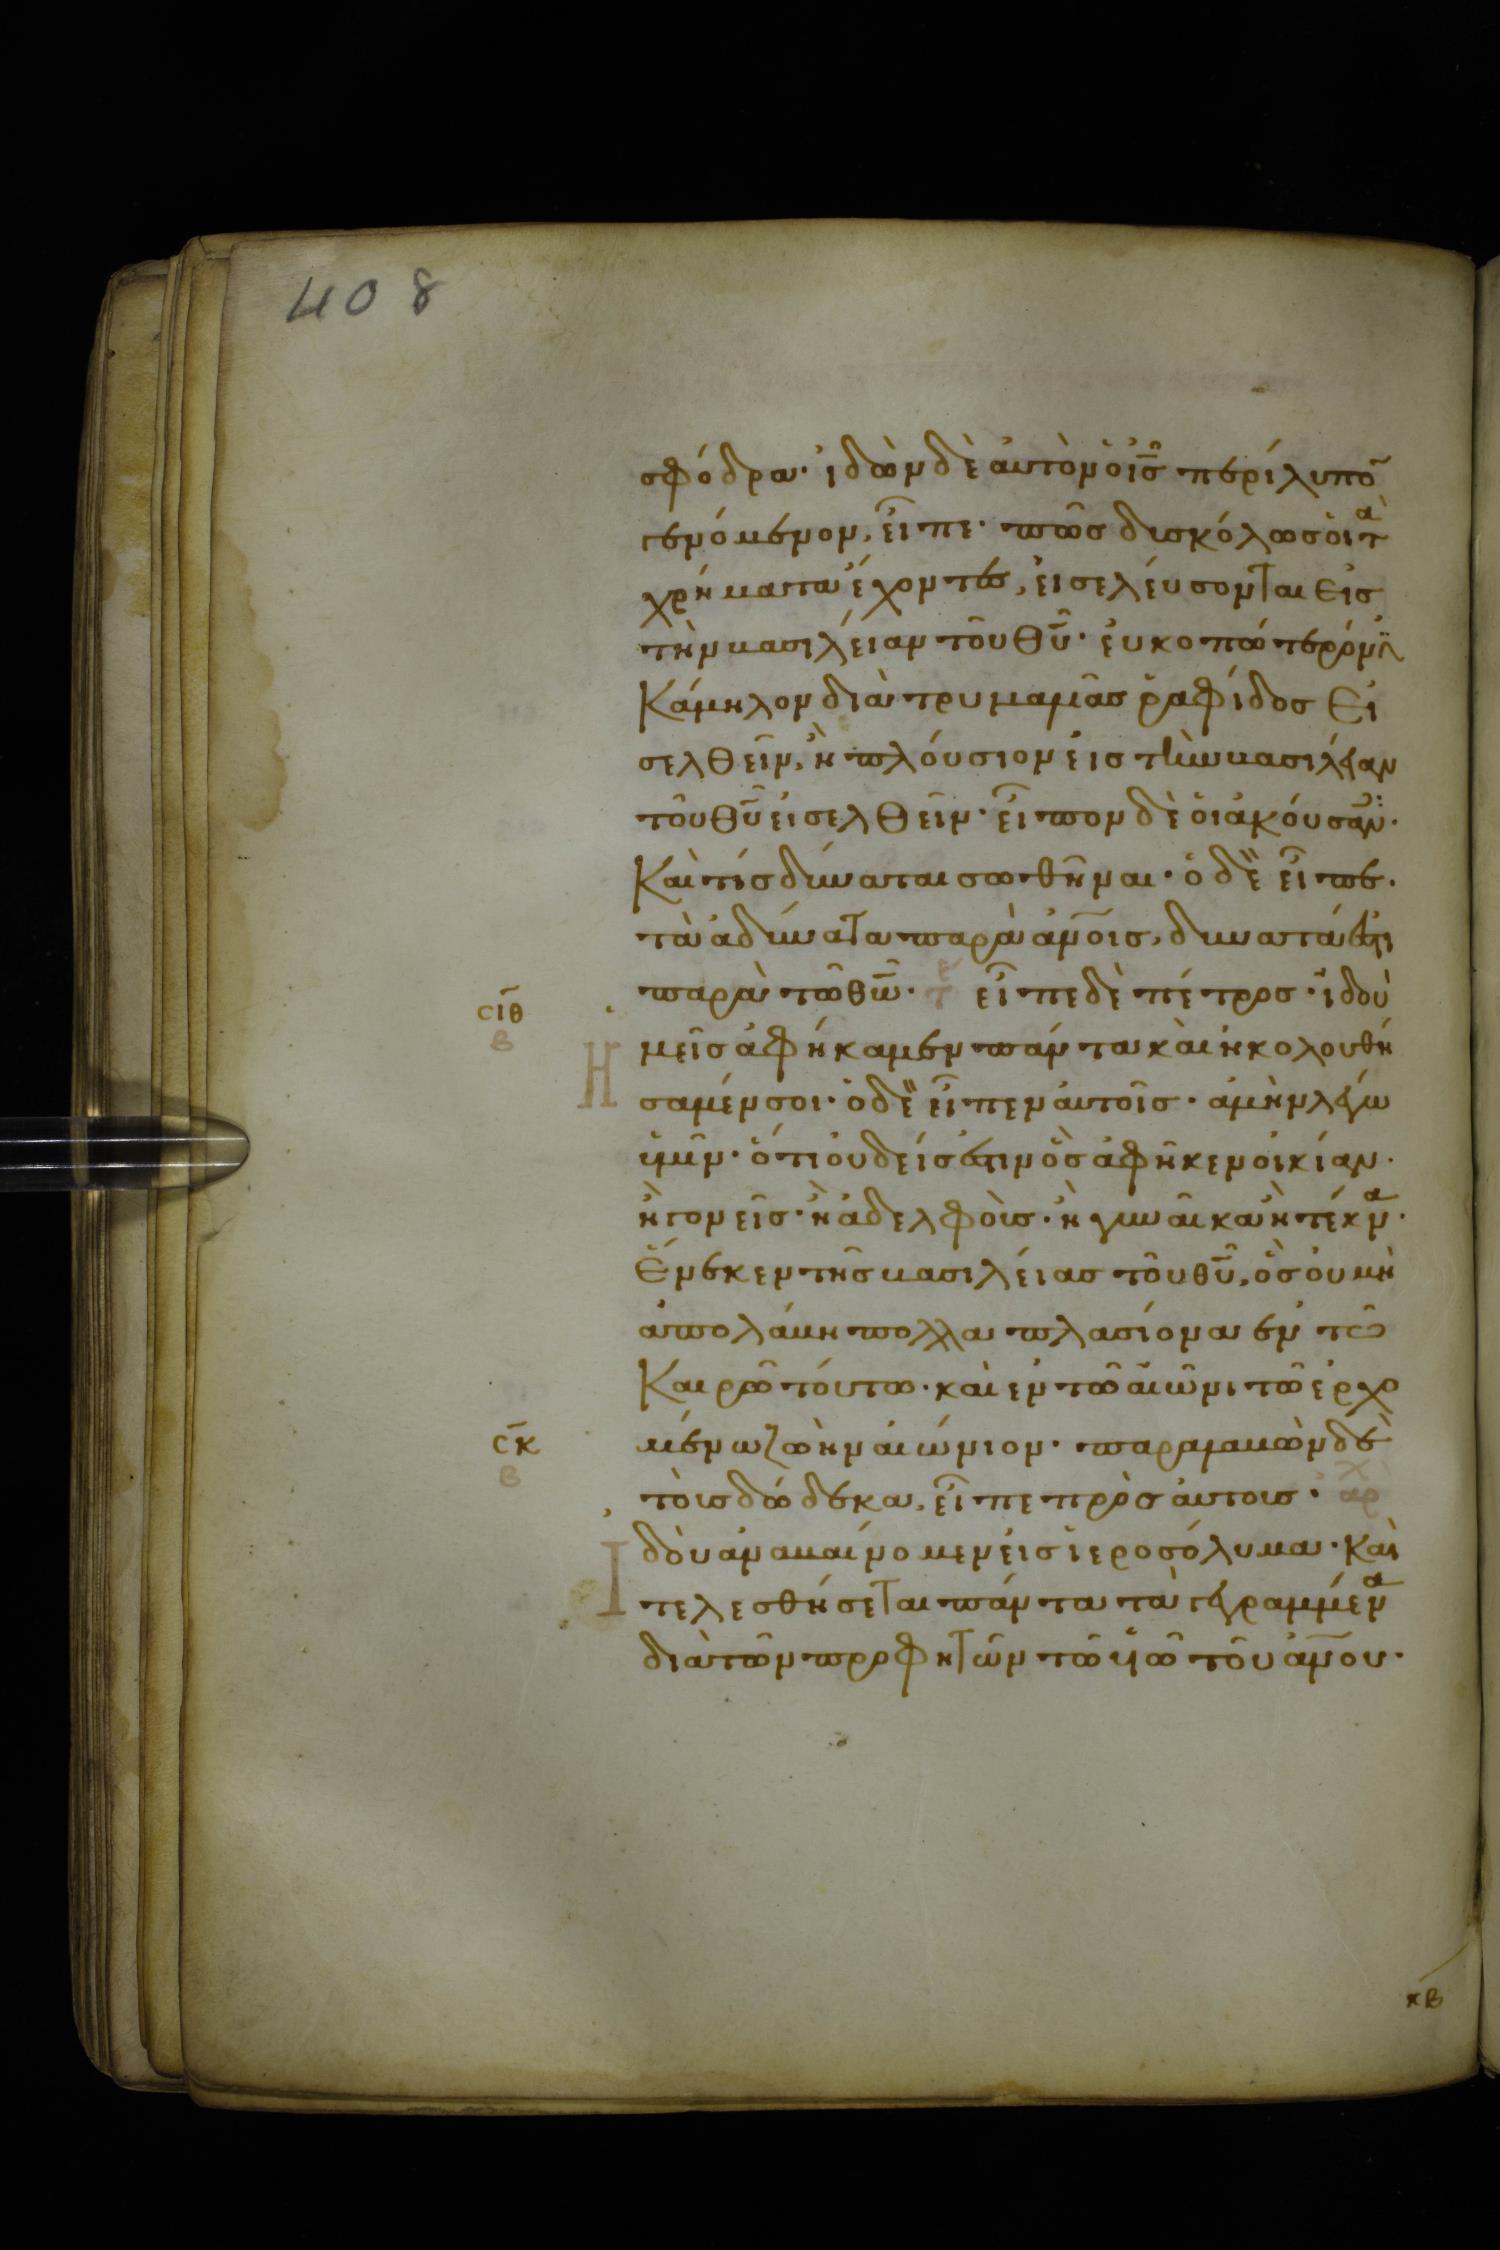 408
σφόδρα· ἰδὼν δὲ ἀυτὸν ὁ ι̅ς̅ περίλυπο̅
γενόμενον, εἶπε· πῶς δισκόλως ὁι τὰ
χρήματα ἔχοντες, ἐισελέυσονται εἰς
τὴν βασιλέιαν τοῦ θ̅υ̅· ἐυκοπώτερόν
κάμηλον διὰ τρυμαμᾶς ῥαφίδος εἰ
σελθεῖν, ἢ πλόυσιον ἐις τὴν βασιλείαν
τοῦ θ̅υ̅ ἐισελθεῖν· εἶπον δὲ ὁι ἀκόυσαν·
καὶ τίς δύναται σωθῆναι· ὁ δὲ εἶπε·
τὰ ἀδύνατα παρὰ ἀν̅οις, δυνατά ἐστι
παρὰ τῶ θ̅ω̅· τε εἶπε δὲ πέτρος· ἰδοὺ
σ̅ι̅θ̅
β
Ημεῖς ἀφήκαμεν πάντα κὰι ἠκολουθή
σαμέν σοι· ὁ δὲ εἶπεν ἀυτοῖς· ἀμὴν λέγω
ὑμῖν· ὅτι ὀυδείς ἐστιν ὃς ἀφῆκεν οἰκίαν·
ἢ γονεῖς· ἢ ἀδελφὸυς· ἢ γυναῖκα ἢ τέκνα·
ἕνεκεν τῆς βασιλέιας τοῦ θ̅υ̅, ὃς ὀυ μὴ
ἀπολάβη πολλαπλασίονα ἐν τῶ
καιρῶ τόυτω· κὰι ἐν τῶ αἰῶνι τῶ ἐρχο
σ̅κ̅
β
μένω ζωὴν αἰώνιον· παραλαβὼν δὲ
τὸυς δώδεκα, εἶπε πρὸς ἀυτους· αρχ
Ιδὸυ ἀναβαίνομεν ἐις ἱεροσόλυμα· κὰι
τελεσθήσεται πάντα τὰ γεγραμμένα
διὰ τῶν προφητῶν τῶ ὑῶ τοῦ ἀν̅ου·
κβ